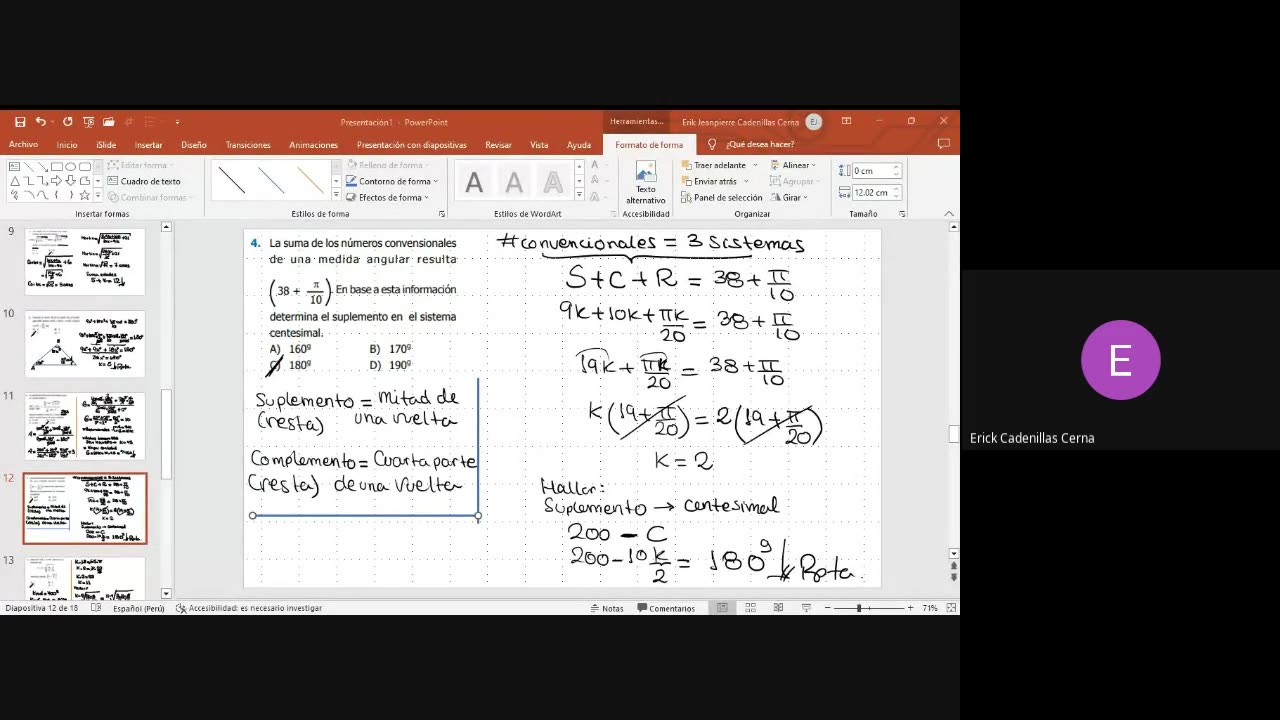 Presentación1 - PowerPoint
Herramientas...
Erik Jeanpierre Cadenillas Cerna
EJ
Archivo
Inicio
iSlide
Insertar
Diseño
Transiciones
Animaciones
Presentación con diapositivas
Revisar
Vista
Ayuda
Formato de forma
¿Qué desea hacer?
Editar forma
Cuadro de texto
Combinar formas
Insertar formas
Relleno de forma
Contorno de forma
Efectos de forma
Estilos de forma
A A A
Estilos de WordArt
Texto
alternativo
Accesibilidad
Traer adelante
Enviar atrás
Panel de selección
Alinear
Agrupar
Girar
Organizar
0 cm
12.02 cm
Tamaño
9
10
11
12
13
4. La suma de los números convensionales
de una medida angular resulta
(38 + π/10). En base a esta información
determina el suplemento en el sistema
centesimal.
A) 160g B) 170g
C) 180g D) 190g
Suplemento = Mitad de
(resta) una vuelta
Complemento = Cuarta parte
(resta) de una vuelta
#convencionales = 3 sistemas
S+C+R = 38+π/10
9k+10k+πk/20 = 38+π/10
19k+πk/20 = 38+π/10
k(19+π/20) = 2(19+π/20)
k = 2
Hallar:
Suplemento → centesimal
200 - C
200-10k/2 = 180g Rpta.
Diapositiva 12 de 18
Español (Perú)
Accesibilidad: es necesario investigar
Notas
Comentarios
71%
E
Erick Cadenillas Cerna